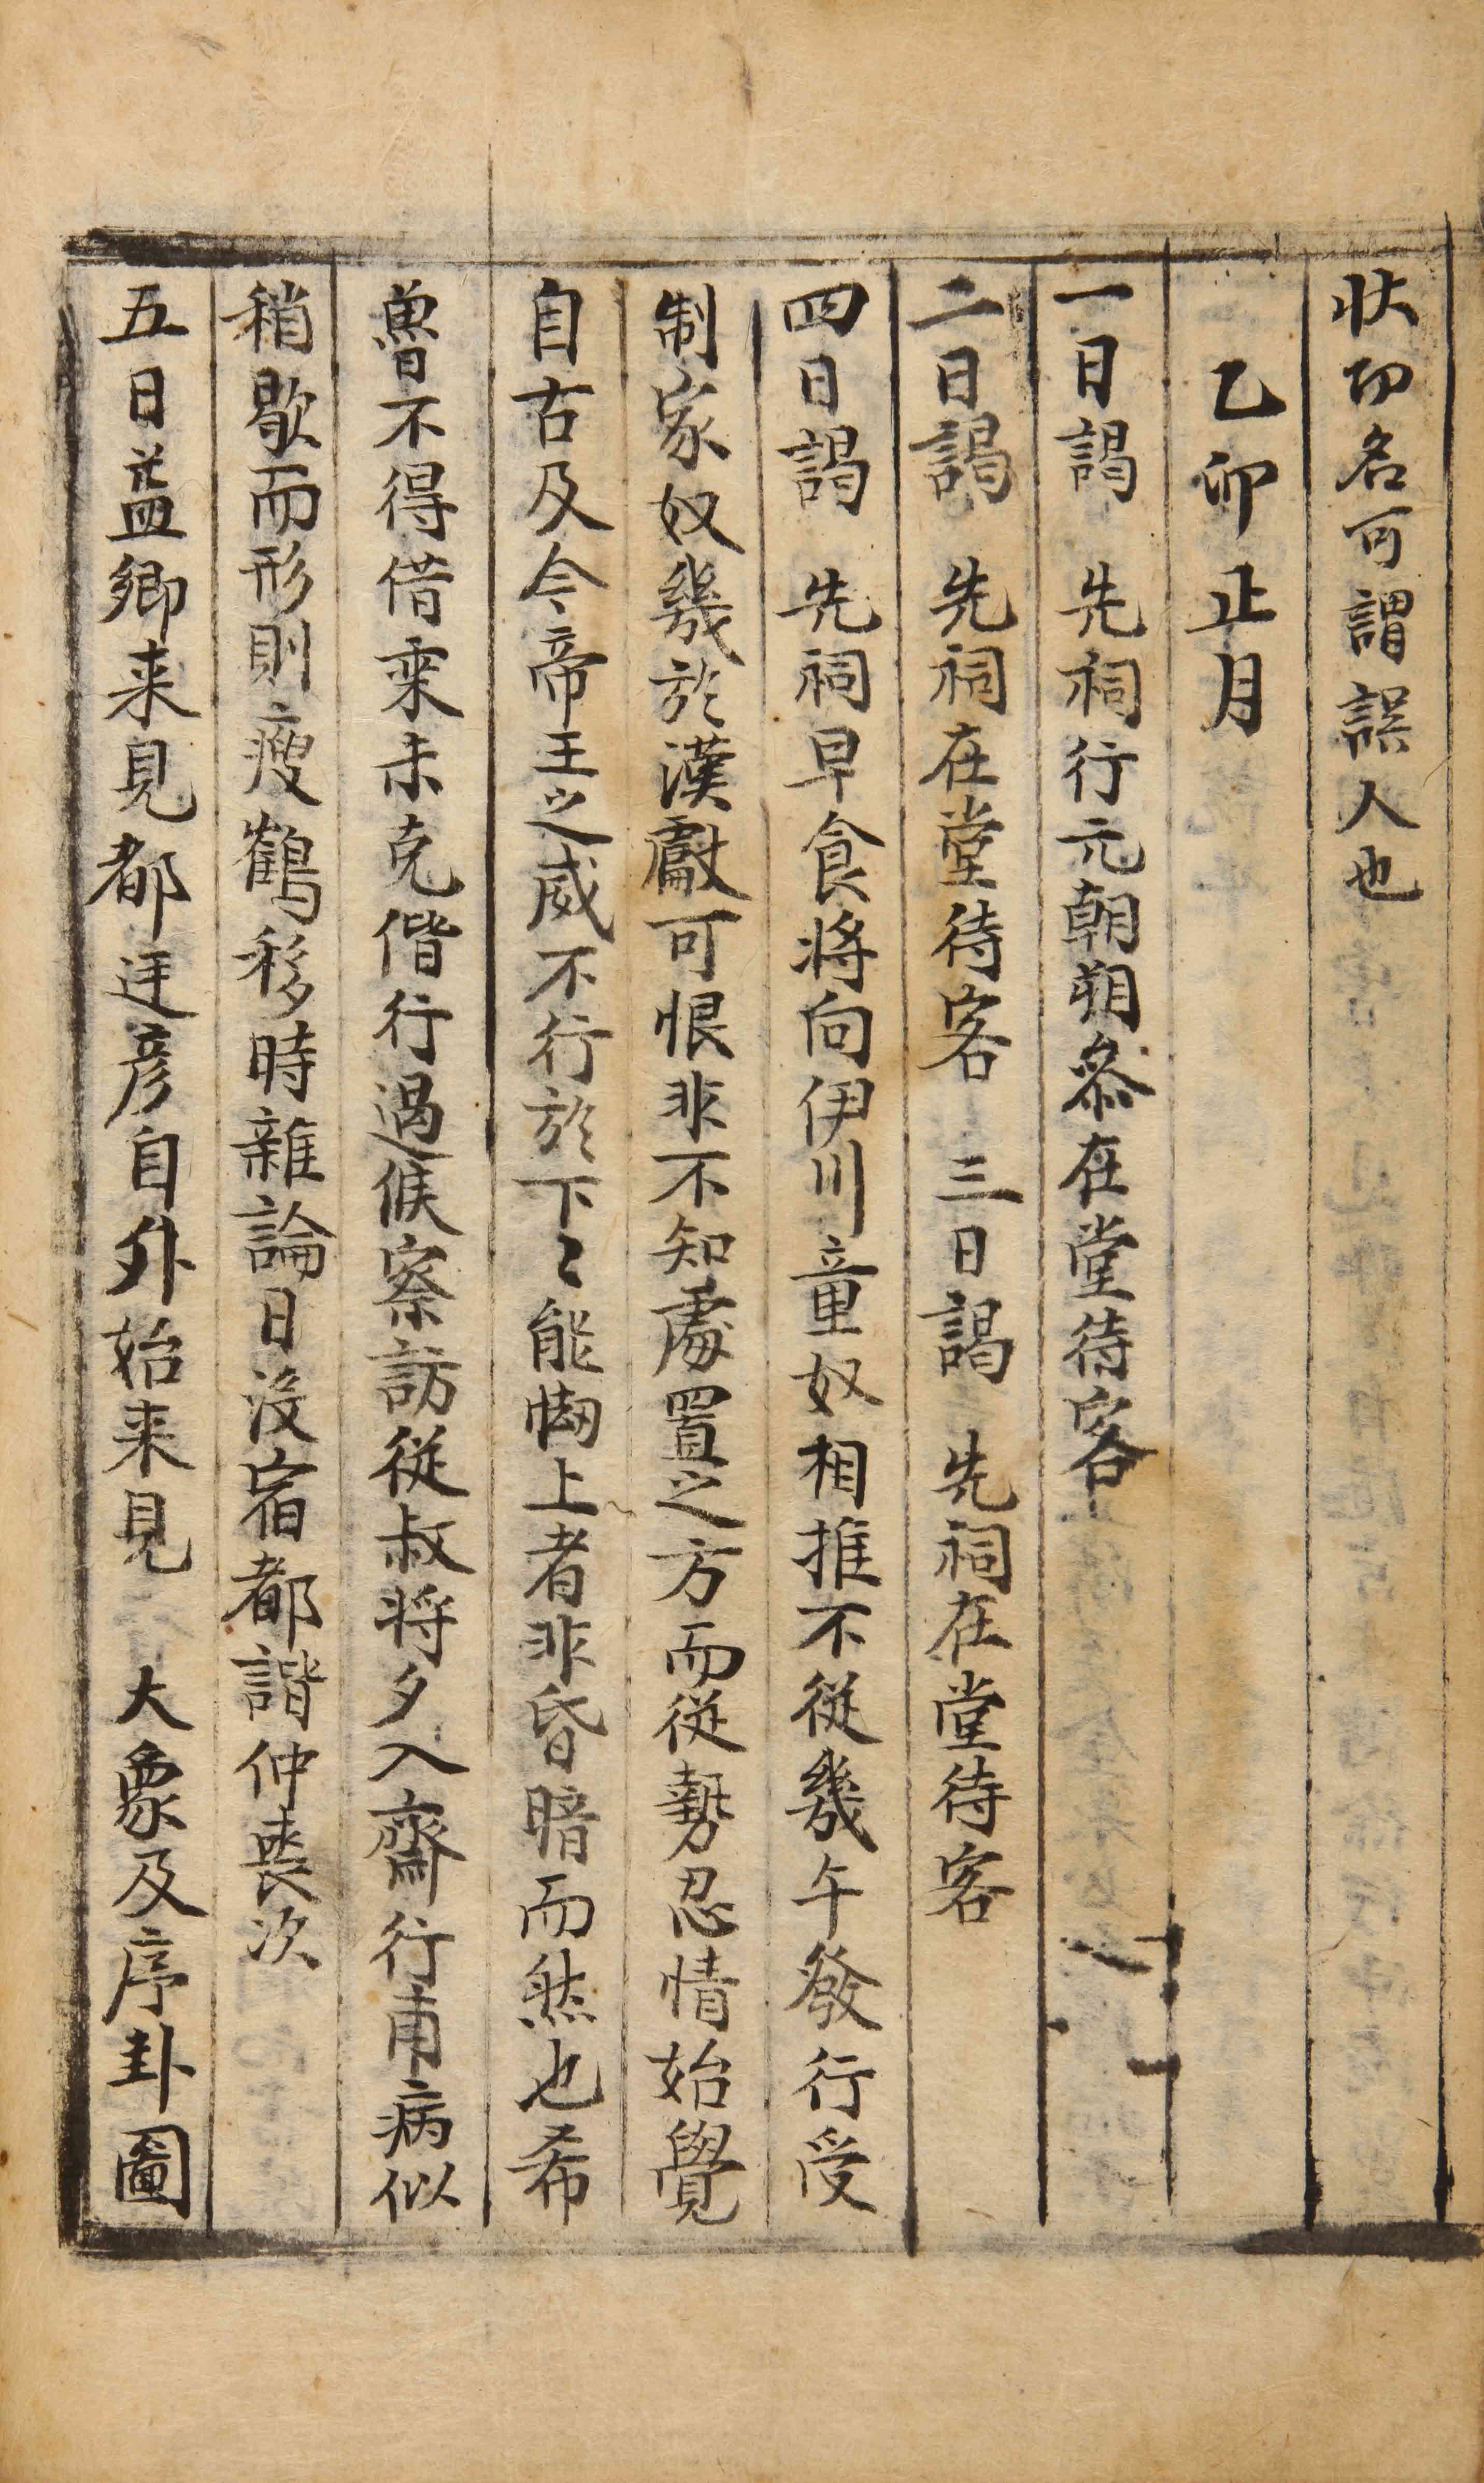 狀切名可謂誤人也
乙卯正月
一日謁　先祠行元朝朔叅在堂待客
二日謁　先祠在堂待客　三日謁　先祠在堂待客
四日謁　先祠早食將向伊川童奴相推不從幾午發行受
制家奴幾於漢獻可恨非不知處置之方而従勢忍情始覺
自古及今帝王之威不行於下〻能凾上者非昏暗而然也希
魯不得借来未克偕行過候察訪從叔將夕入齋行甫病似
稍歇而形則瘦鶴移時雜論日沒宿都諧仲喪次
五日益卿来見都廷彦自外始来見　大象及序卦圖